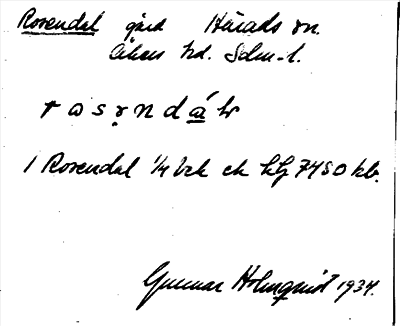 Rosendal gård Härads sn.
Åkers hd. Sdm-l.
r ɷ s ṛ n d á̲ lr
1 Rosendal 1/4 bek ek hfj 7450 kb.
Gunnar Holmquist 1934.